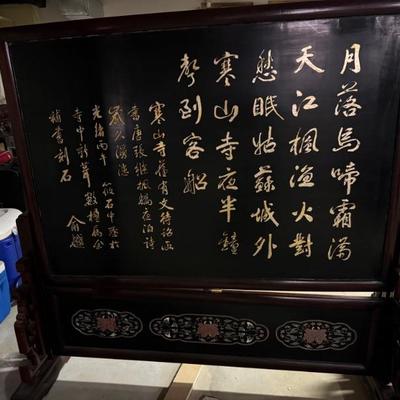 月落烏啼霜滿
天江楓漁火對
愁眠姑蘇城外
寒山寺夜半鐘
聲到客船
寒山寺舊有文待詔所
書唐張繼楓橋夜泊詩
歲久漫漶
光緒丙午筱石中丞於
寺中新葺數楹屬余
補書刻石
俞樾